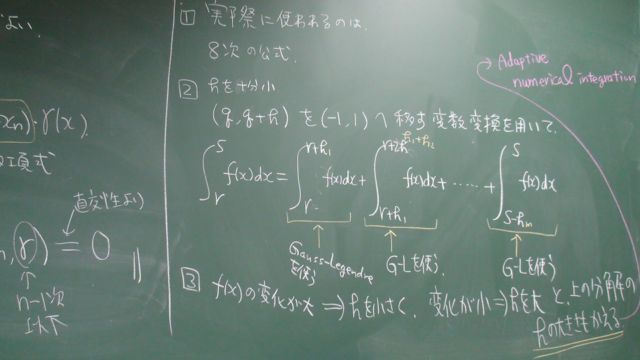 よい.
xn)・r(x).
項式
直交性より
n, r) = 0
n-1次
以下
① 実際に使われるのは、
8次の公式.
② hを十分小
(g, g+h) を (-1, 1) へ移す変数変換を用いて、
∫_r^s f(x)dx = ∫_r^{r+h1} f(x)dx + ∫_{r+h1}^{r+2h h1+h2} f(x)dx + ・・・・・ + ∫_{s-hm}^s f(x)dx
Gauss-Legendre
を使う
G-Lを使う.
G-Lを使う
③ f(x)の変化が大 ⇒ hを小さく、変化が小 ⇒ hを大 と、上の分解の
hの大きさをかえる
Adaptive
numerical integration